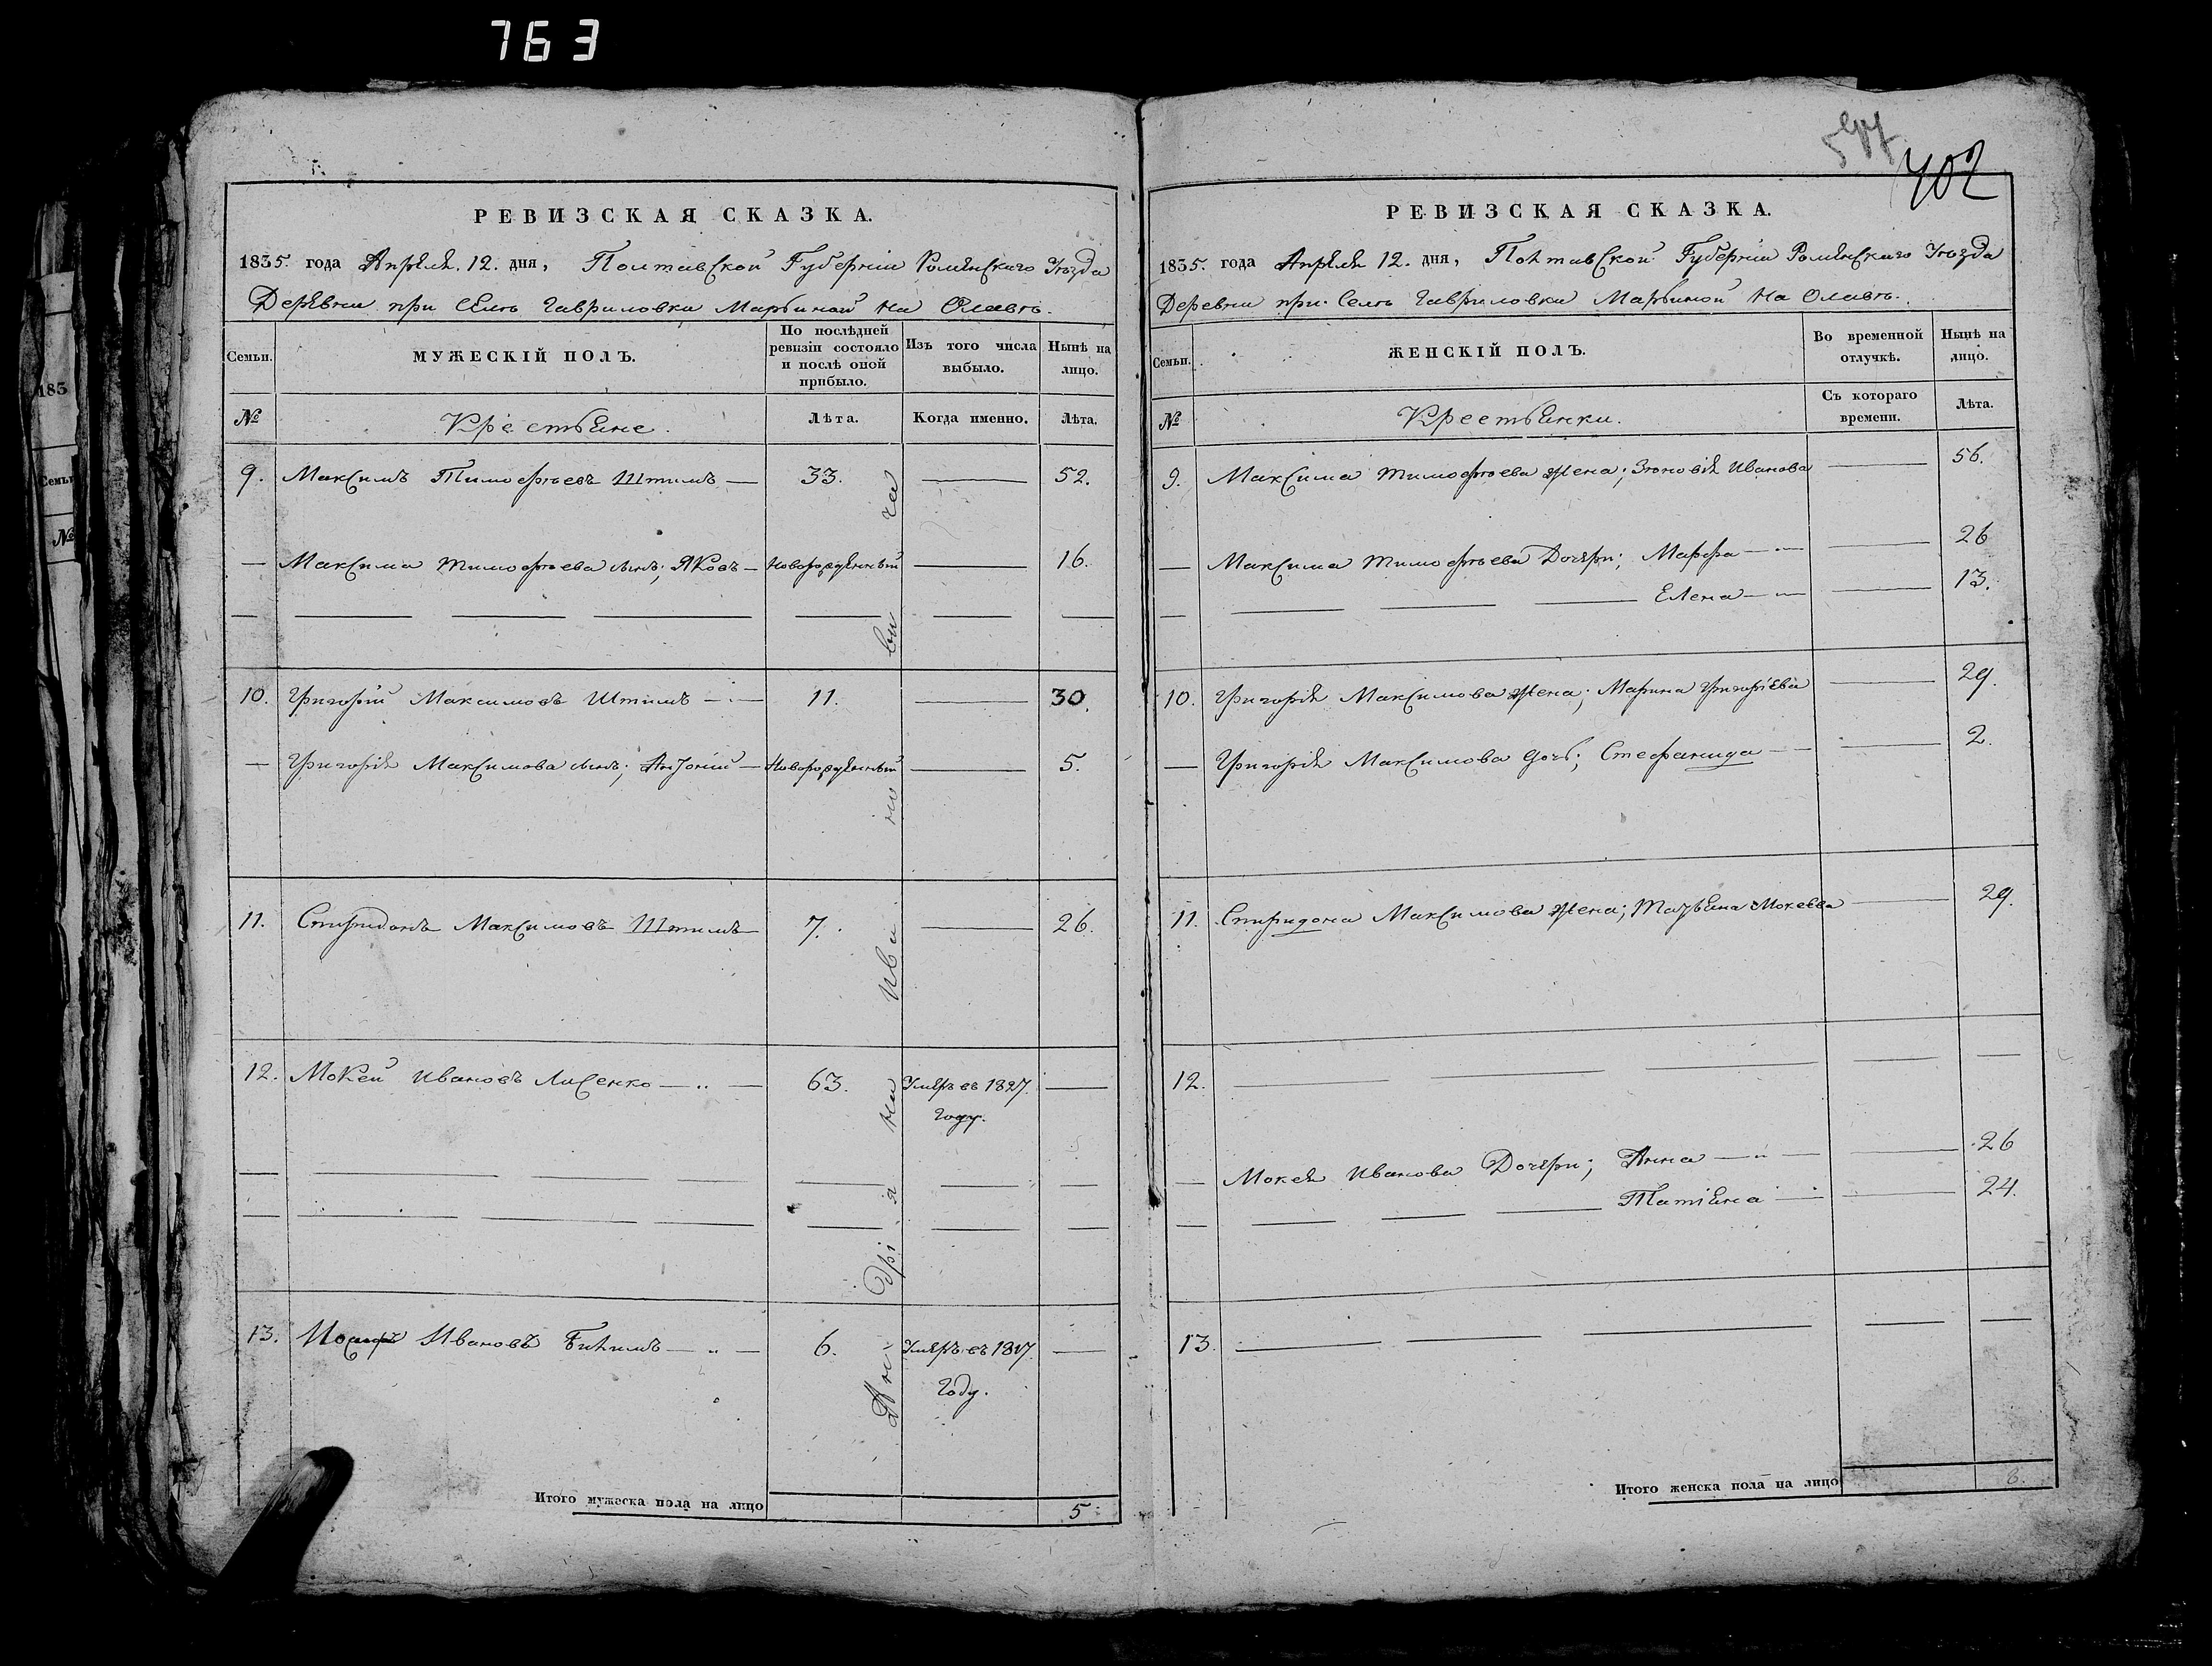 763
402
РЕВИЗСКАЯ СКАЗКА.
1835. года Апреля. 12. дня, Полтавской Губерніи Роменскаго Уезда
Деревни при селѣ Гавриловки Марьиной на Олавѣ.
Семьи.
МУЖЕСКІЙ ПОЛЪ.
По послѣдней ревизіи состояло и послѣ оной прибыло.
Изъ того числа выбыло.
Нынѣ на лицо.
№
Крестьяне.
Лѣта.
Когда именно.
Лѣта.
9. Максимъ Тимофѣевъ Штимъ — 33. — 52.
— Максима Тимофѣева сынъ; Яковъ — новорожденный — 16.
10. Григорій Максимовъ Штимъ — 11. — 30.
— Григорія Максимова сынъ; Антоній — новорожденный — 5.
11. Спиридонъ Максимовъ Штимъ — 7. — 26.
12. Мокей Ивановъ Лисенко — 63. Умеръ въ 1827. году. —
13. Иосифъ Ивановъ — 6. Умеръ въ 1817. Году. —
Итого мужеска пола на лицо 5
РЕВИЗСКАЯ СКАЗКА.
1835. года Апреля 12. дня, Полтавской Губерніи Роменскаго Уезда
Деревни при Селѣ Гавриловки Марьиной на Олавѣ.
Семьи.
ЖЕНСКІЙ ПОЛЪ.
Во временной отлучкѣ.
Нынѣ на лицо.
№
Крестьянки.
Съ котораго времени.
Лѣта.
9. Максима Тимофѣева жена; Зѣновія Иванова — 56.
— Максима Тимофѣева Дочери; Марфа — 26
Елена — 13.
10. Григорія Максимова жена; Марина Григоріева — 29.
— Григорія Максимова дочь; Стефанида — 2.
11. Спиридона Максимова жена; Татьяна Мокеева — 29.
12.
— Мокея Иванова Дочери; Анна — 26
Татіяна — 24.
13.
Итого женска пола на лицо 6.